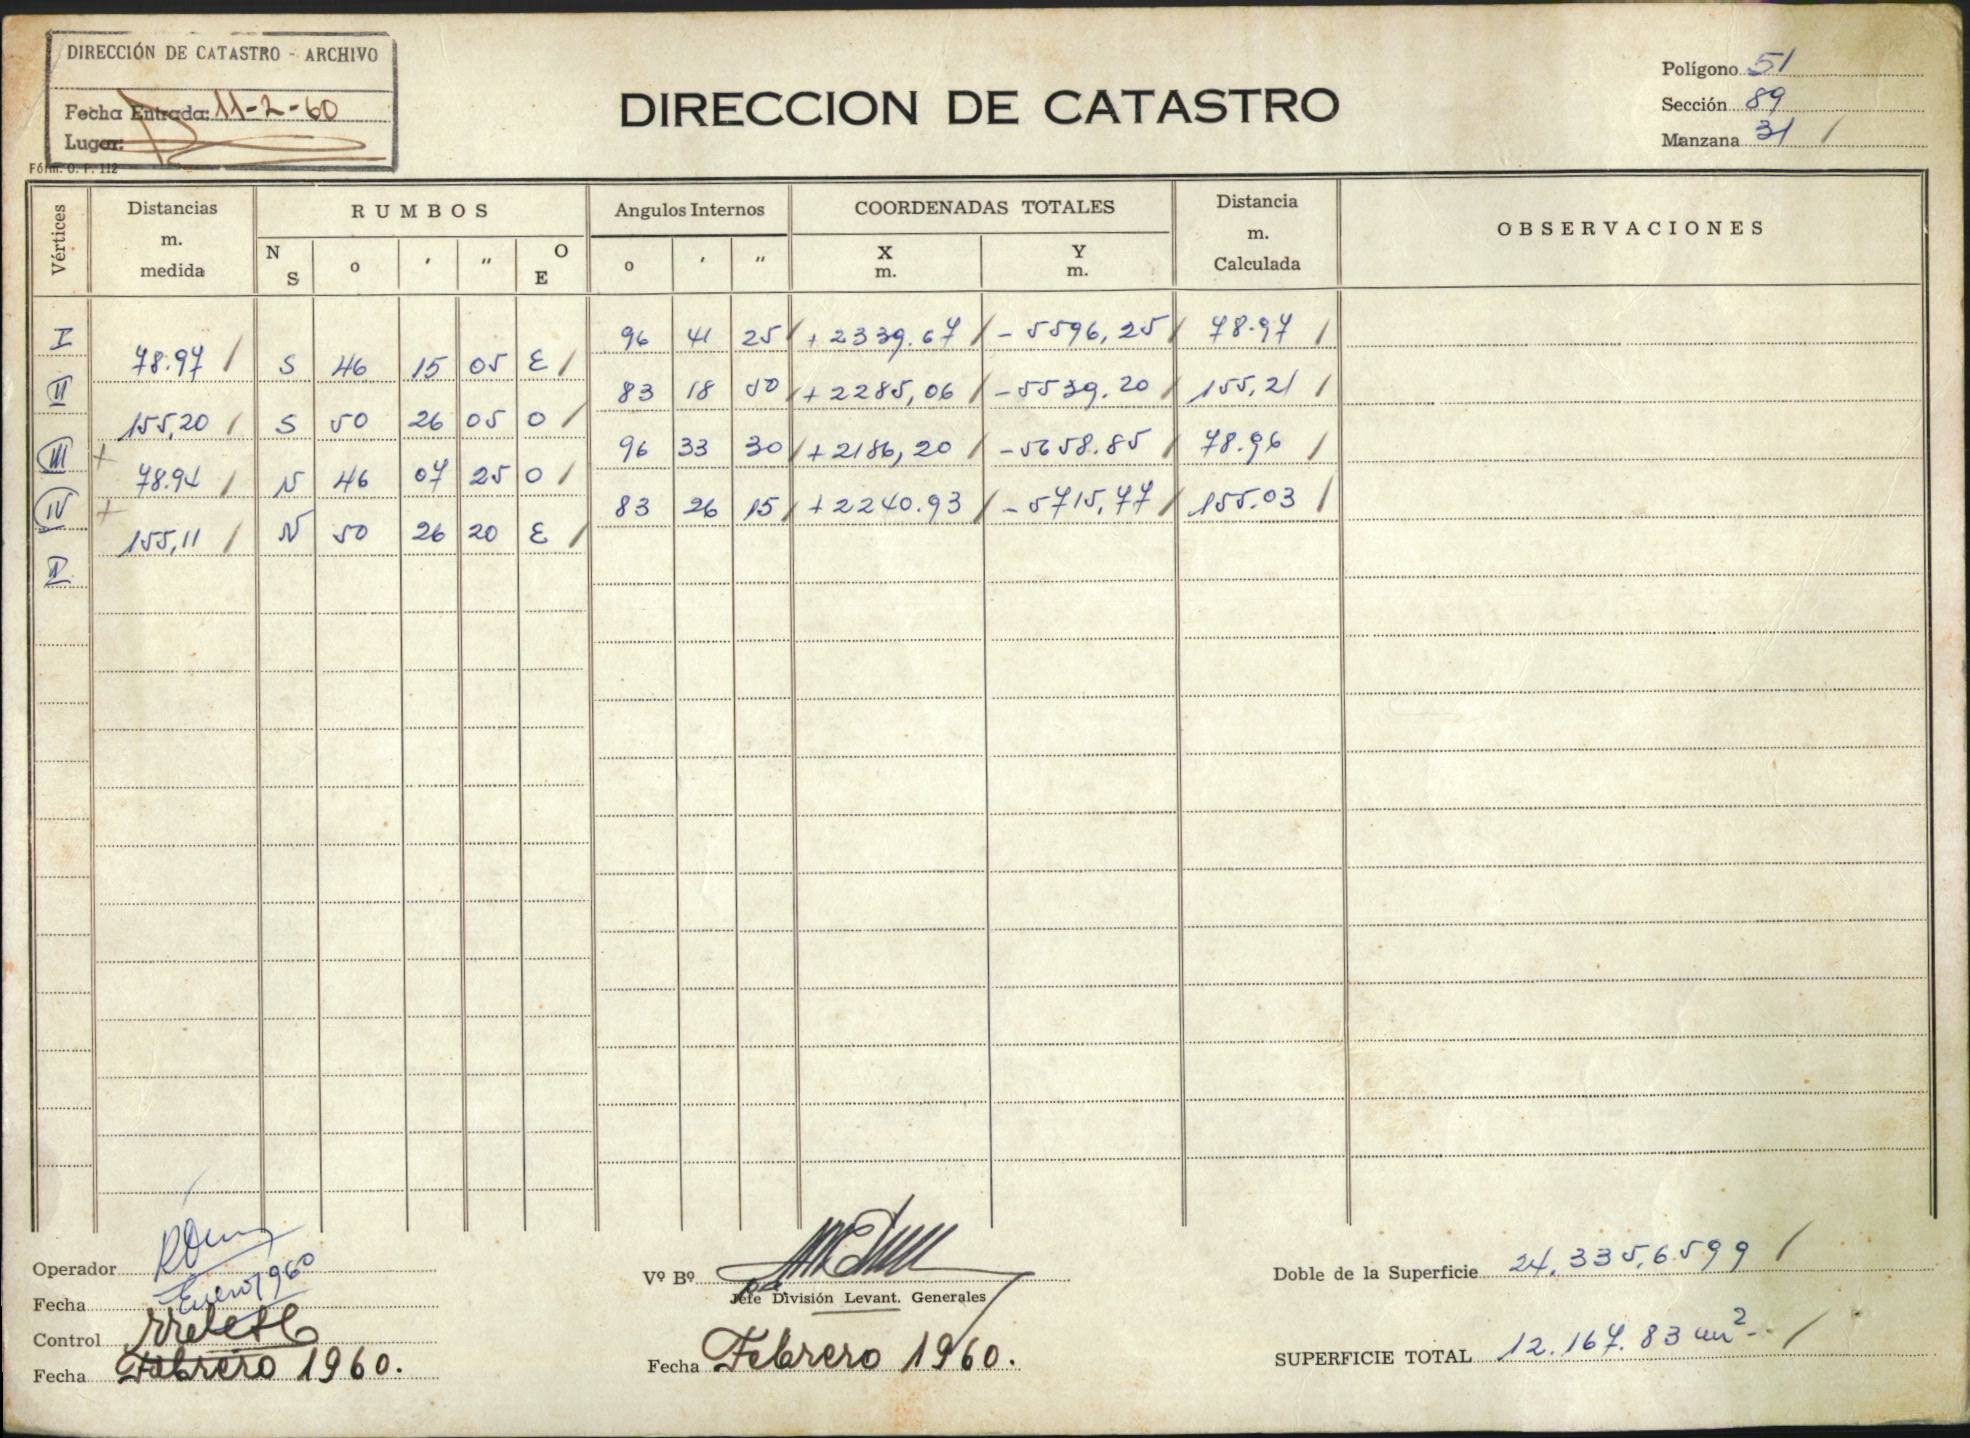 DIRECCIÓN DE CATASTRO - ARCHIVO
Fecha Entrada: 11-2-60
Lugar:
Fórm. O. P. 112
DIRECCION DE CATASTRO
Polígono 51
Sección 89
Manzana 31 /
Vértices
Distancias m. medida
RUMBOS
N S o ' " O E
Angulos Internos
o ' "
COORDENADAS TOTALES
X m. Y m.
Distancia m. Calculada
OBSERVACIONES
I 96 41 25 / + 2339.67 / - 5596,25 / 78.97 /
78.97 / S 46 15 05 E /
II 83 18 50 / + 2285,06 / - 5539.20 / 155,21 /
155,20 / S 50 26 05 O /
III + 96 33 30 / + 2186,20 / - 5658.85 / 78.96 /
78.94 / N 46 07 25 O /
IV + 83 26 15 / + 2240.93 / - 5715,77 / 155.03 /
155,11 / N 50 26 20 E /
Operador
Fecha Enero 1960
Control
Fecha Febrero 1960.
Vº Bº
Jefe División Levant. Generales
Fecha Febrero 1960.
Doble de la Superficie 24.335,6599 /
SUPERFICIE TOTAL 12.167.83 m² - /